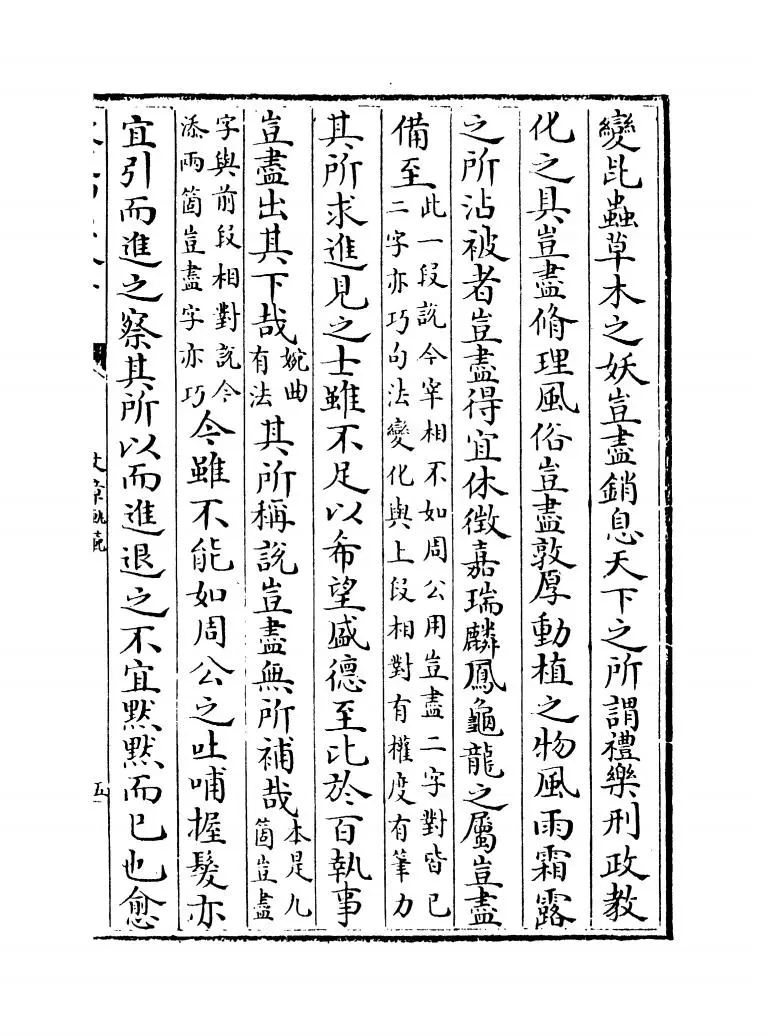 變昆蟲草木之妖豈盡銷息天下之所謂禮樂刑政教
化之具豈盡脩理風俗豈盡敦厚動植之物風雨霜露
之所沾被者豈盡得宜休徵嘉瑞麟鳳龜龍之屬豈盡
備至
此一段說今宰相不如周公用豈盡二字對皆已
二字亦巧句法變化與上段相對有權度有筆力
其所求進見之士雖不足以希望盛德至比於百執事
豈盡出其下哉
婉曲
有法
其所稱說豈盡無所補哉
本是九
箇豈盡
字與前段相對說今
添兩箇豈盡字亦巧
今雖不能如周公之吐哺握髮亦
宜引而進之察其所以而進退之不宜黙黙而已也愈
文章軌範
五